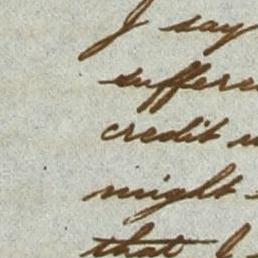 I say
suffere
credit
might
that I